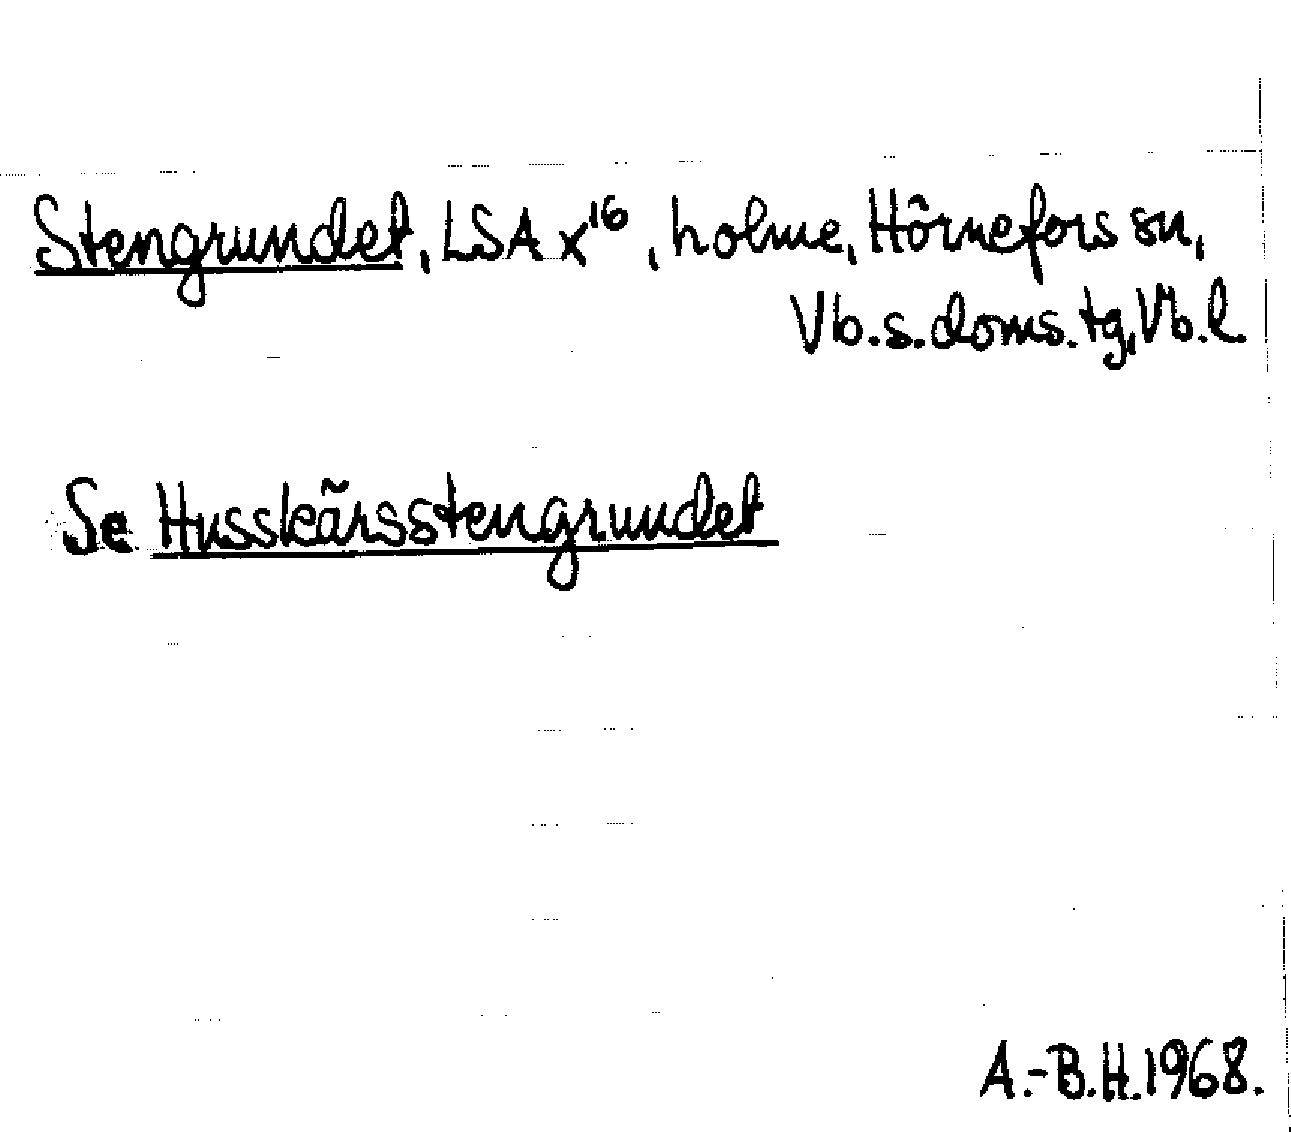 Stengrundet, LSA x16, holme, Hörnefors sn,
Vb.s.doms.tg, Vb.l.
Se Husskärsstengrundet
A.-B.H.1968.